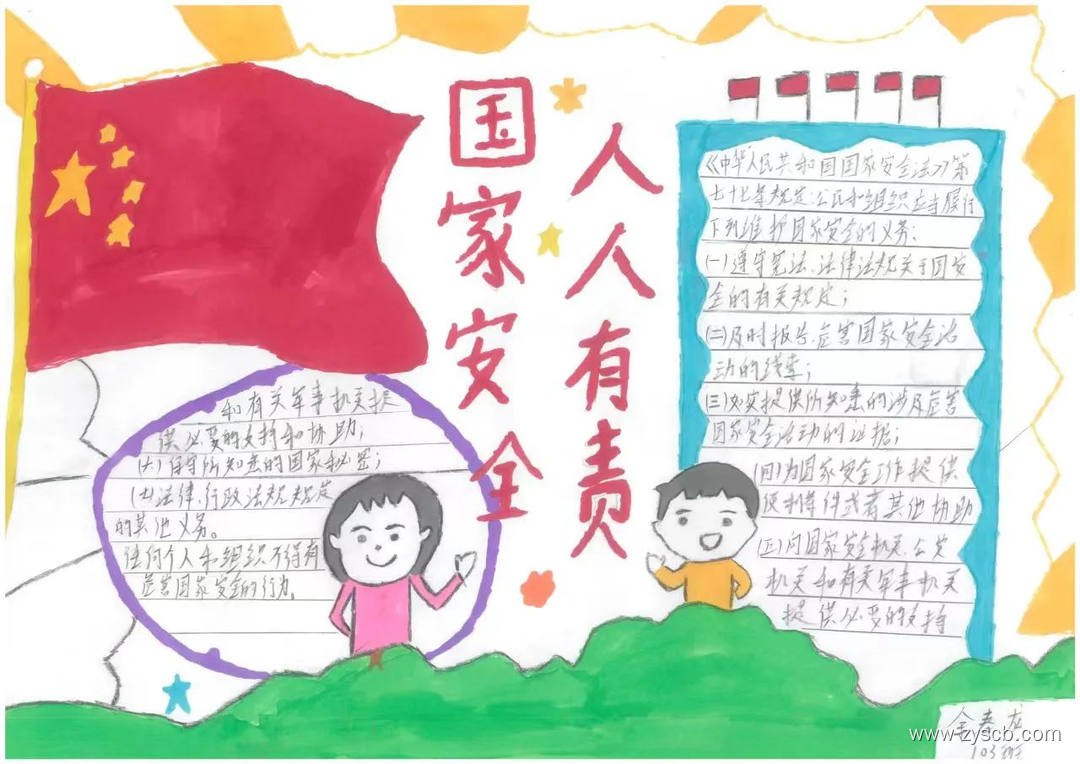 国家安全
人人有责
《中华人民共和国国家安全法》第
七十七条规定:公民和组织应当履行
下列维护国家安全的义务:
(一)遵守宪法、法律法规关于国家安
全的有关规定;
(二)及时报告危害国家安全活
动的线索;
(三)如实提供所知悉的涉及危害
国家安全活动的证据;
(四)为国家安全工作提供
便利条件或者其他协助
(五)向国家安全机关、公安
机关和有关军事机关
提供必要的支持
和有关军事机关提
供必要的支持和协助;
(六)保守所知悉的国家秘密;
(七)法律、行政法规规定
的其他义务。
任何个人和组织不得有
危害国家安全的行为。
金春龙
103班
www.zyscb.com